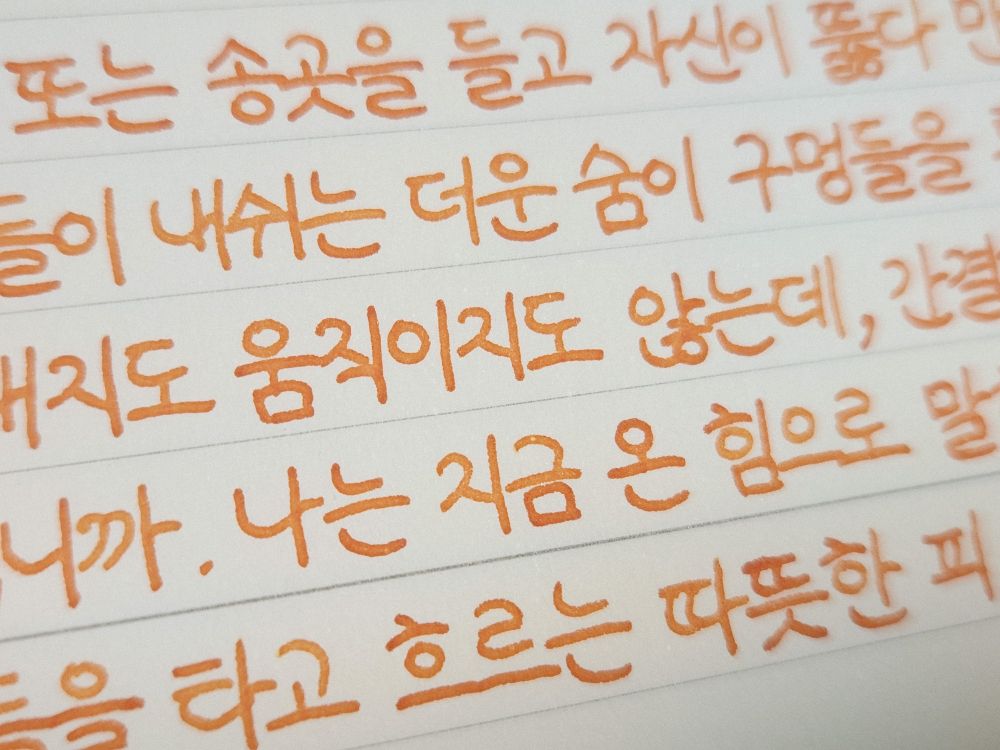 또는 송곳을 들고 자신이 뚫다 만
들이 내쉬는 더운 숨이 구멍들을
내지도 움직이지도 않는데, 간결
니까. 나는 지금 온 힘으로 말
들을 타고 흐르는 따뜻한 피